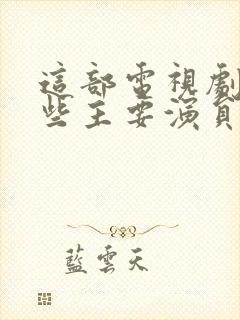 這部電視劇
些主要演員
藍雲天